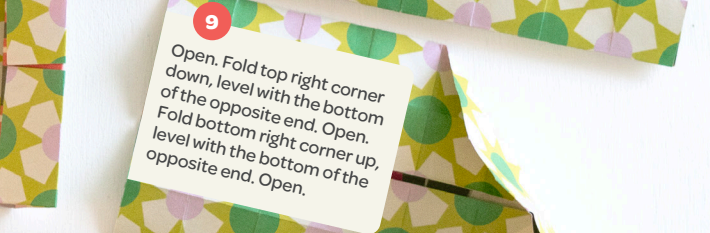 9
Open. Fold top right corner
down, level with the bottom
of the opposite end. Open.
Fold bottom right corner up,
level with the bottom of the
opposite end. Open.